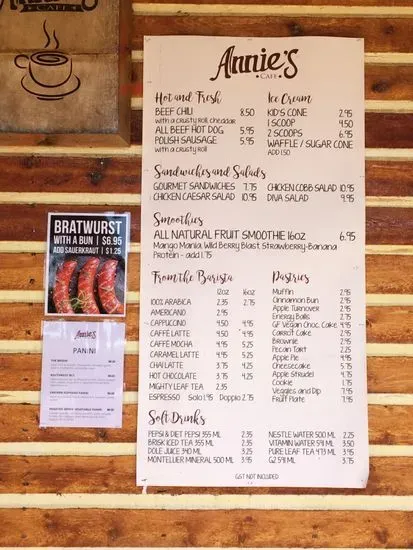 Annie's
• CAFE •
Hot and Fresh
BEEF CHILI 8.50
with a crusty roll, cheddar
ALL BEEF HOT DOG 5.95
POLISH SAUSAGE 5.95
with a crusty roll
Ice Cream
KID'S CONE 2.95
1 SCOOP 4.50
2 SCOOPS 6.95
WAFFLE / SUGAR CONE
ADD 1.50
Sandwiches and Salads
GOURMET SANDWICHES 7.75
CHICKEN CAESAR SALAD 10.95
CHICKEN COBB SALAD 10.95
DIVA SALAD 9.95
Smoothies
ALL NATURAL FRUIT SMOOTHIE 16oz 6.95
Mango Mania, Wild Berry Blast, Strawberry-Banana
Protein - add 1.75
From the Barista
12oz 16oz
100% ARABICA 2.35 2.75
AMERICANO 2.95
CAPPUCCINO 4.50 4.95
CAFFÈ LATTE 4.50 4.95
CAFFÈ MOCHA 4.95 5.25
CARAMEL LATTE 4.95 5.25
CHAI LATTE 3.75 4.25
HOT CHOCOLATE 3.75 4.25
MIGHTY LEAF TEA 2.35
ESPRESSO Solo 1.95 Doppio 2.75
Pastries
Muffin 2.95
Cinnamon Bun 2.95
Apple Turnover 2.95
Energy Balls 2.75
GF Vegan Choc. Cake 4.95
Carrot Cake 2.95
Brownie 2.95
Pecan Tart 2.25
Apple Pie 4.95
Cheesecake 5.75
Apple Strudel 4.75
Cookie 1.75
Veggies and Dip 7.95
Fruit Plate 7.95
Soft Drinks
PEPSI & DIET PEPSI 355 ML 2.25
BRISK ICED TEA 355 ML 2.25
DOLE JUICE 340 ML 3.25
MONTELLIER MINERAL 500 ML 3.95
NESTLE WATER 500 ML 2.25
VITAMIN WATER 591 ML 3.50
PURE LEAF TEA 473 ML 3.95
G2 591 ML 3.75
GST NOT INCLUDED
CAFE
BRATWURST
WITH A BUN | $6.95
ADD SAUERKRAUT | $1.25
Annie's
PANINI